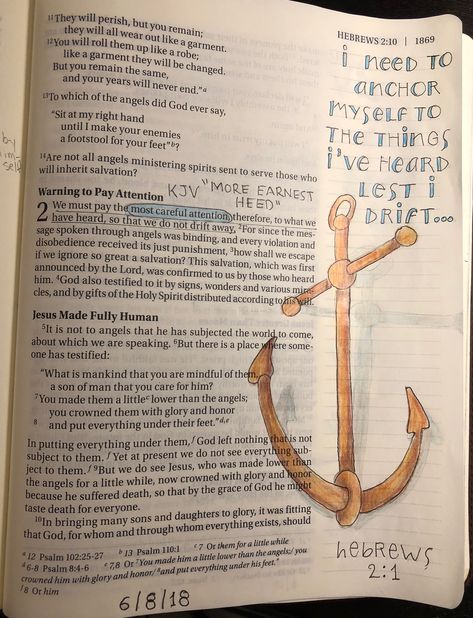 HEBREWS 2:10 | 1869
¹¹They will perish, but you remain;
they will all wear out like a garment.
¹²You will roll them up like a robe;
like a garment they will be changed.
But you remain the same,
and your years will never end."ᵃ
¹³To which of the angels did God ever say,
"Sit at my right hand
until I make your enemies
a footstool for your feet"ᵇ?
¹⁴Are not all angels ministering spirits sent to serve those who
will inherit salvation?
Warning to Pay Attention
KJV "MORE EARNEST
HEED"
2 We must pay the most careful attention, therefore, to what we
have heard, so that we do not drift away. ²For since the mes-
sage spoken through angels was binding, and every violation and
disobedience received its just punishment, ³how shall we escape
if we ignore so great a salvation? This salvation, which was first
announced by the Lord, was confirmed to us by those who heard
him. ⁴God also testified to it by signs, wonders and various mira-
cles, and by gifts of the Holy Spirit distributed according to his will.
Jesus Made Fully Human
⁵It is not to angels that he has subjected the world to come,
about which we are speaking. ⁶But there is a place where some-
one has testified:
"What is mankind that you are mindful of them,
a son of man that you care for him?
⁷You made them a littleᶜ lower than the angels;
you crowned them with glory and honor
8 and put everything under their feet."ᵈ,ᵉ
In putting everything under them,ᶠ God left nothing that is not
subject to them.ᶠ Yet at present we do not see everything sub-
ject to them.ᶠ ⁹But we do see Jesus, who was made lower than
the angels for a little while, now crowned with glory and honor
because he suffered death, so that by the grace of God he might
taste death for everyone.
¹⁰In bringing many sons and daughters to glory, it was fitting
that God, for whom and through whom everything exists, should
ᵃ 12 Psalm 102:25-27 ᵇ 13 Psalm 110:1 ᶜ 7 Or them for a little while
ᵈ 6-8 Psalm 8:4-6 ᵉ 7,8 Or ⁷You made him a little lower than the angels;/ you
crowned him with glory and honor/ ⁸and put everything under his feet."
ᶠ 8 Or him
6/8/18
i NEED TO
ANCHOR
MYSELF TO
THE THINGS
i'VE HEARD
LEST i
DRIFT...
hEBREWS
2:1